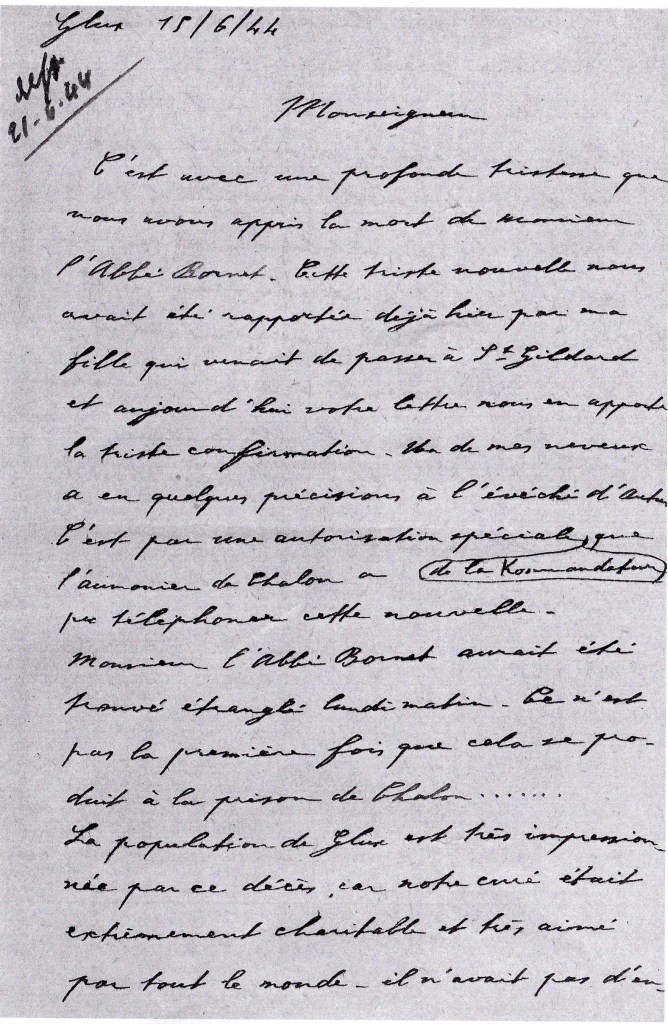 Glux 15/6/44
rép.
21-6-44
Monseigneur
C'est avec une profonde tristesse que
nous avons appris la mort de Monsieur
l'Abbé Bornet. Cette triste nouvelle nous
avait été rapportée déjà hier par ma
fille qui venait de passer à St Gildard
et aujourd'hui votre lettre nous en apporte
la triste confirmation. Un de mes neveux
a eu quelques précisions à l'évêché d'Autun
C'est par une autorisation spéciale, que
de la Kommandatur
l'aumonier de Chalon a
pu téléphoner cette nouvelle -
Monsieur l'Abbé Bornet aurait été
trouvé étranglé lundi matin - Ce n'est
pas la première fois que cela se pro-
duit à la prison de Chalon .......
La population de Glux est très impression-
née par ce décès, car notre curé était
extrêmement charitable et très aimé
par tout le monde - il n'avait pas d'en-